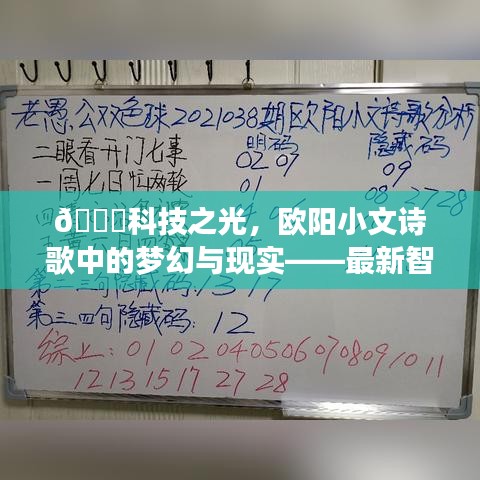 老愚公双色球2021038期欧阳小文诗歌分析
明码 隐藏码
二眼看开门七事 02 07 09
一周七日忙两轮 01 08 27 28
ð科技之光，欧阳小文诗
歌中的梦幻与现实——最新智
第二三句隐藏码:13 17
第三四句隐藏码:12
综上:01 02 04 05 06 07 08 09 10 11
12 13 15 17 27 28